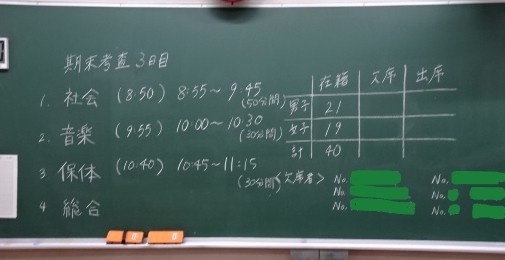 期末考査 3日目
1. 社会 (8:50) 8:55～9:45
(50分間)
2. 音楽 (9:55) 10:00～10:30
(30分間)
3 保体 (10:40) 10:45～11:15
(30分間)
4 総合
在籍 欠席 出席
男子 21
女子 19
計 40
<欠席者> No. No.
No. No.
No. No.